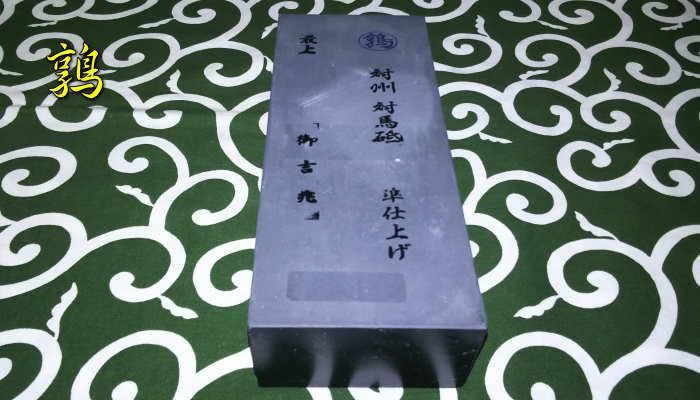 鶉
鶉
対州 対馬砥 準仕上げ
最上
「御吉兆」